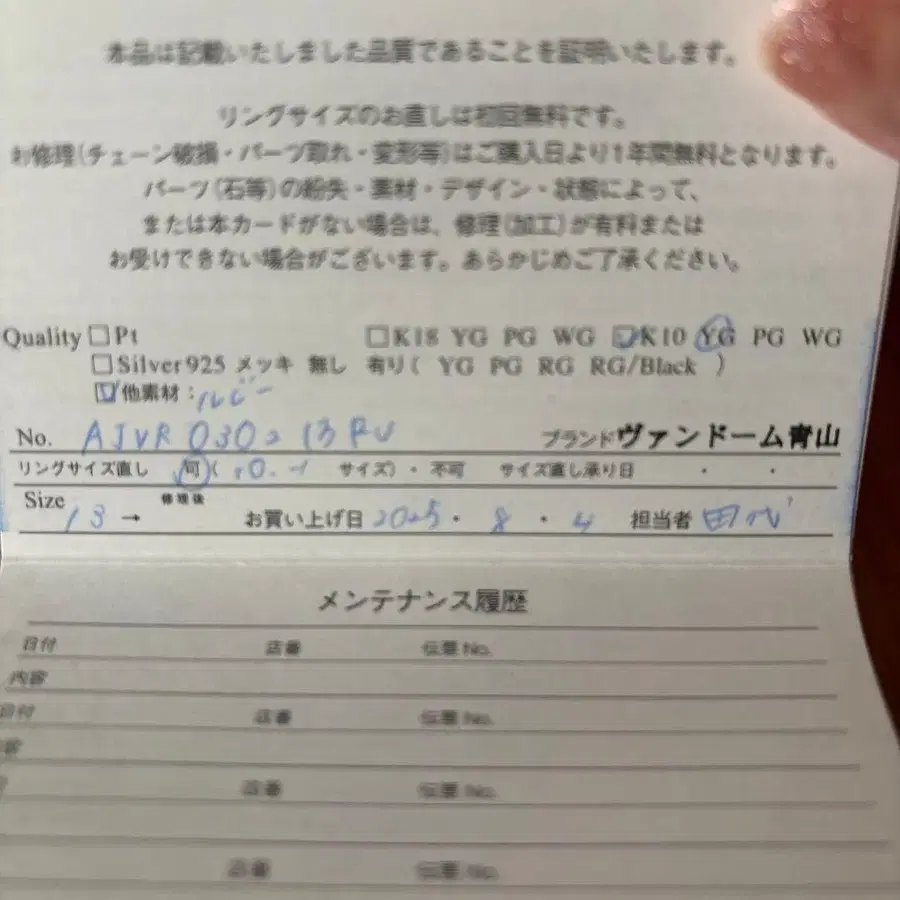 本品は記載いたしました品質であることを証明いたします。
リングサイズのお直しは初回無料です。
お修理(チェーン破損・パーツ取れ・変形等)はご購入日より1年間無料となります。
パーツ(石等)の紛失・素材・デザイン・状態によって、
または本カードがない場合は、修理(加工)が有料または
お受けできない場合がございます。あらかじめご了承ください。
Quality □Pt □K18 YG PG WG ☑K10 YG PG WG
□Silver925 メッキ 無し 有り( YG PG RG RG/Black )
☑他素材:ルビー
No. AJVR 0302 13 RU ブランド ヴァンドーム青山
リングサイズ直し 可( サイズ)・不可 サイズ直し承り日 ・ ・
Size 13 → 修理後 お買い上げ日 2025・8・4 担当者 田代
メンテナンス履歴
日付 店番 伝票No.
内容
日付 店番 伝票No.
内容
店番 伝票No.
店番 伝票No.